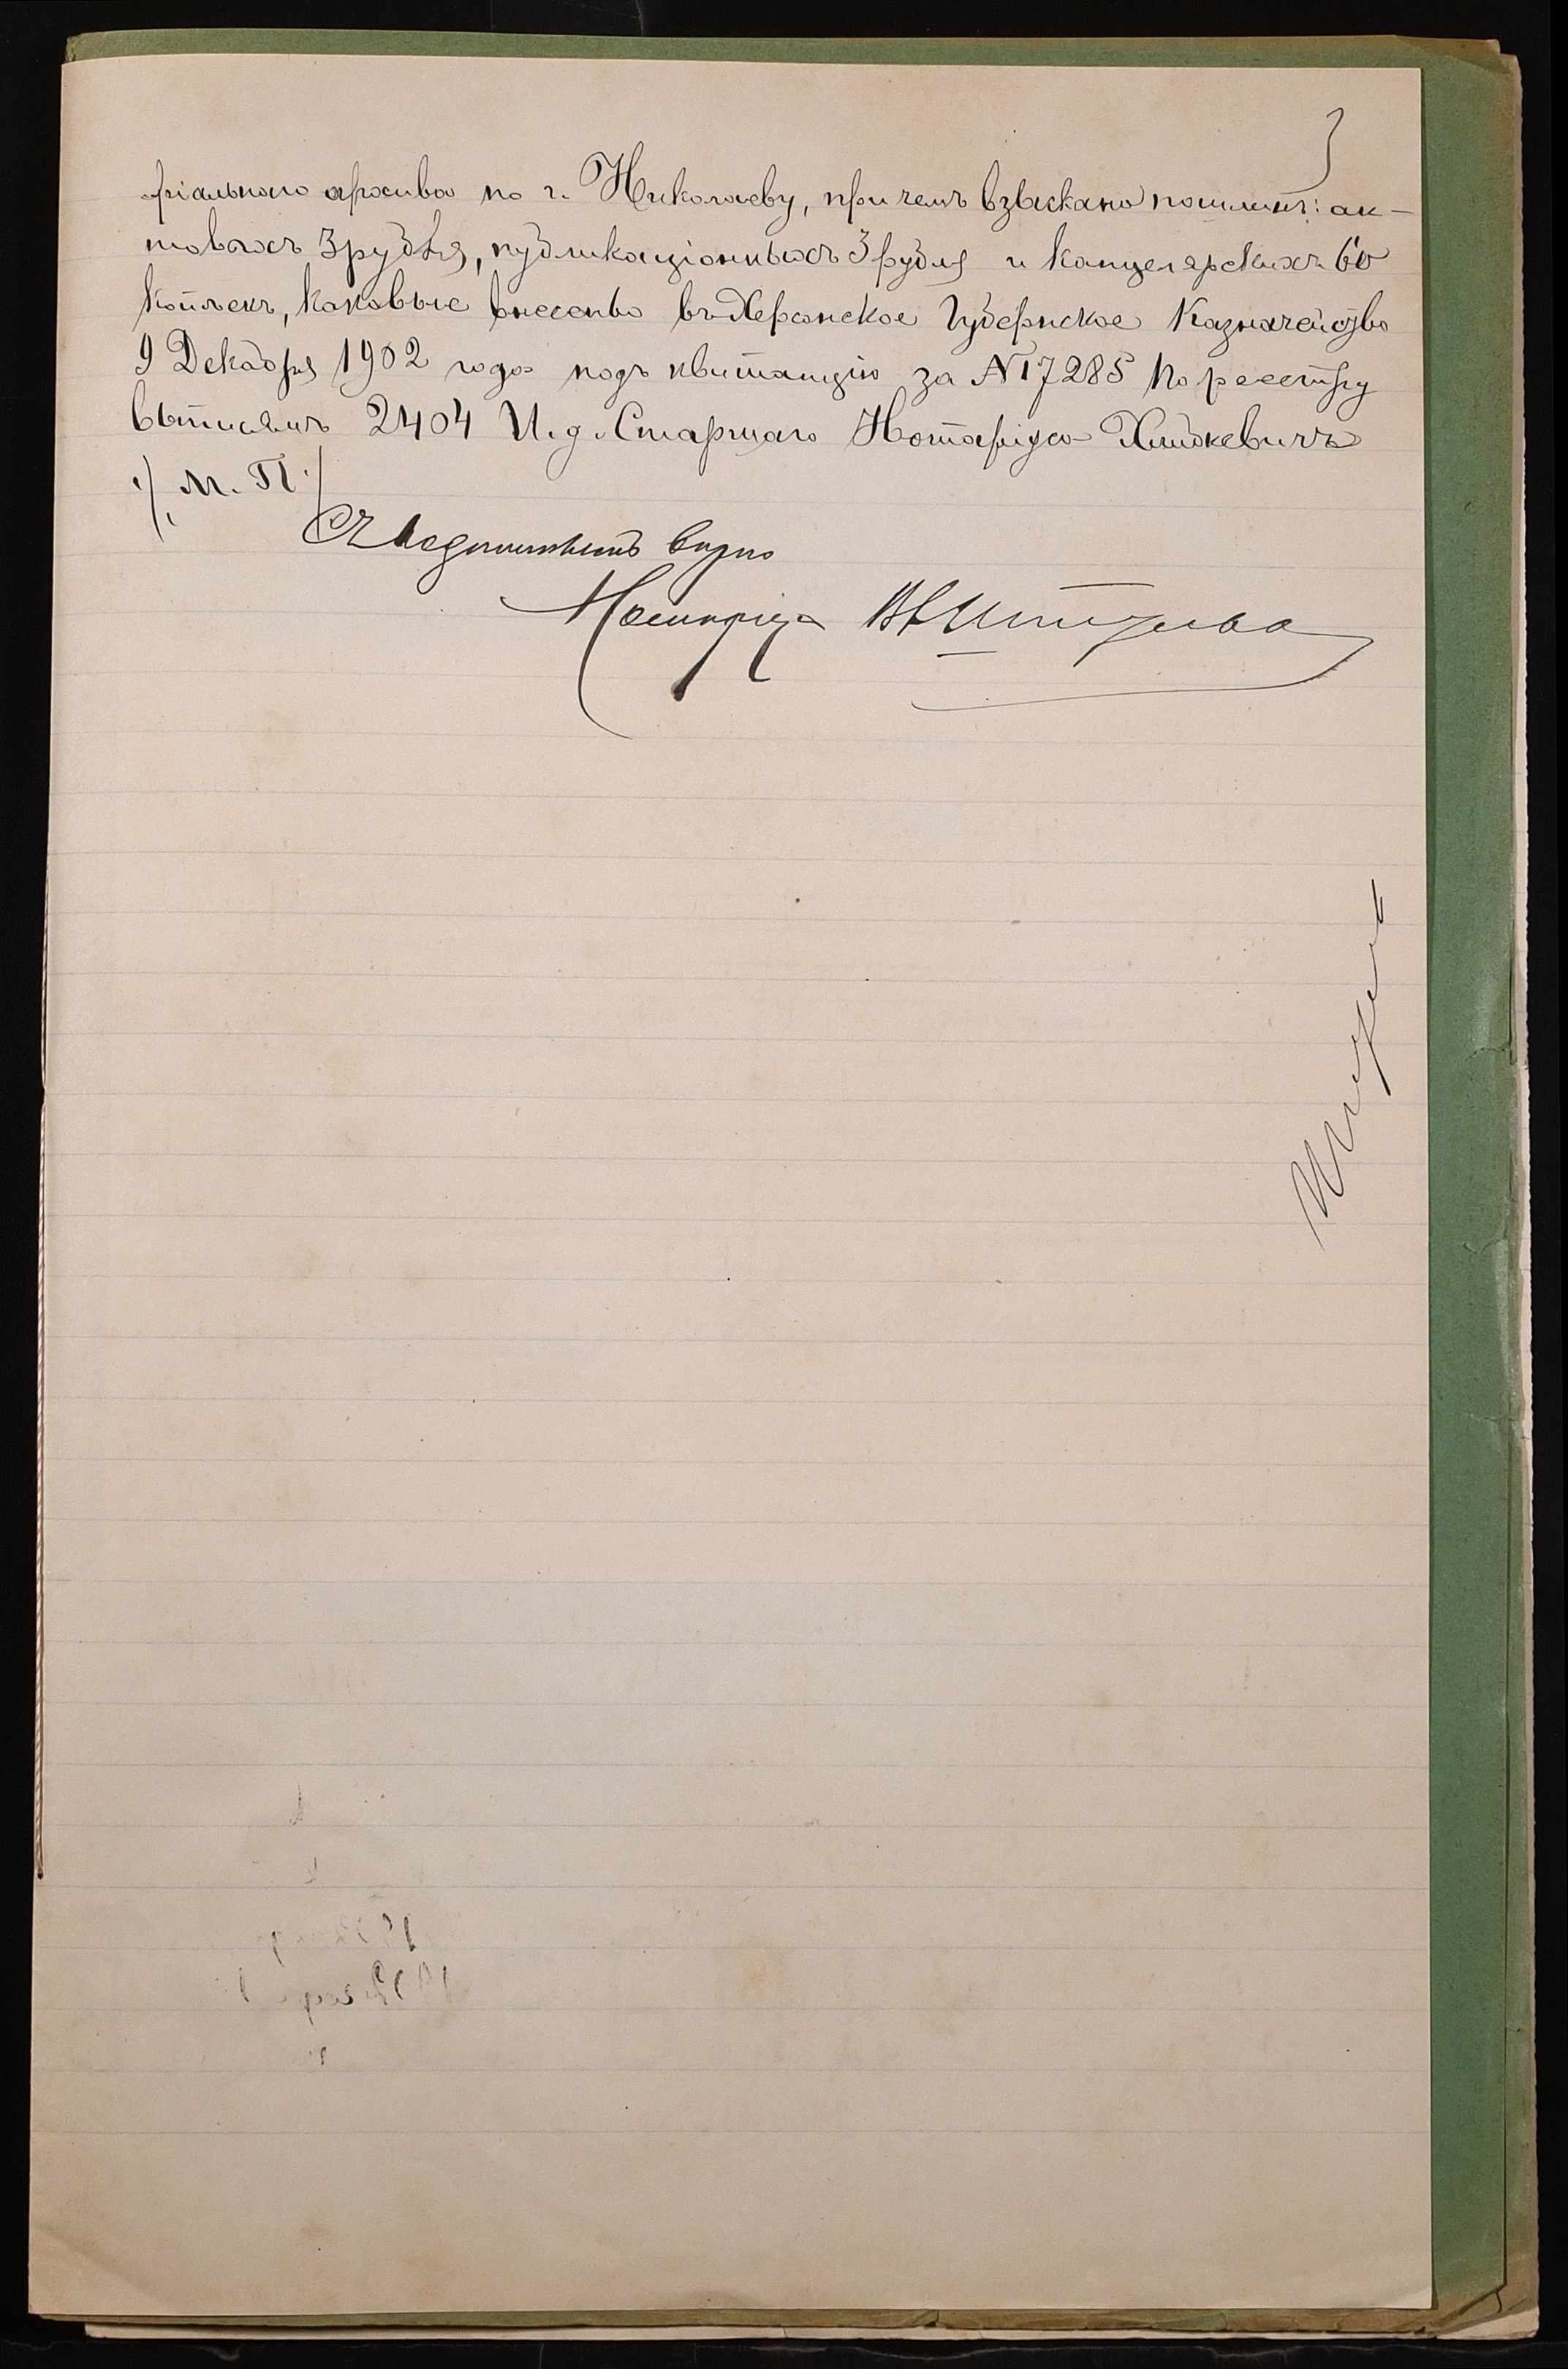 3
ріальнаго архива по г. Николаеву, при чемъ взыскано пошлинъ: ак-
товыхъ 3 рубля, публикаціонныхъ 3 рубля и канцелярскихъ 60
копѣекъ, каковые внесены въ Херсонское Губернское Казначейство
9 Декабря 1902 года подъ квитанцію за № 17285 По реестру
выписямъ 2404 И. д. Старшаго Нотаріуса
/М. П./
Съ подлиннымъ вѣрно
Нотаріусъ